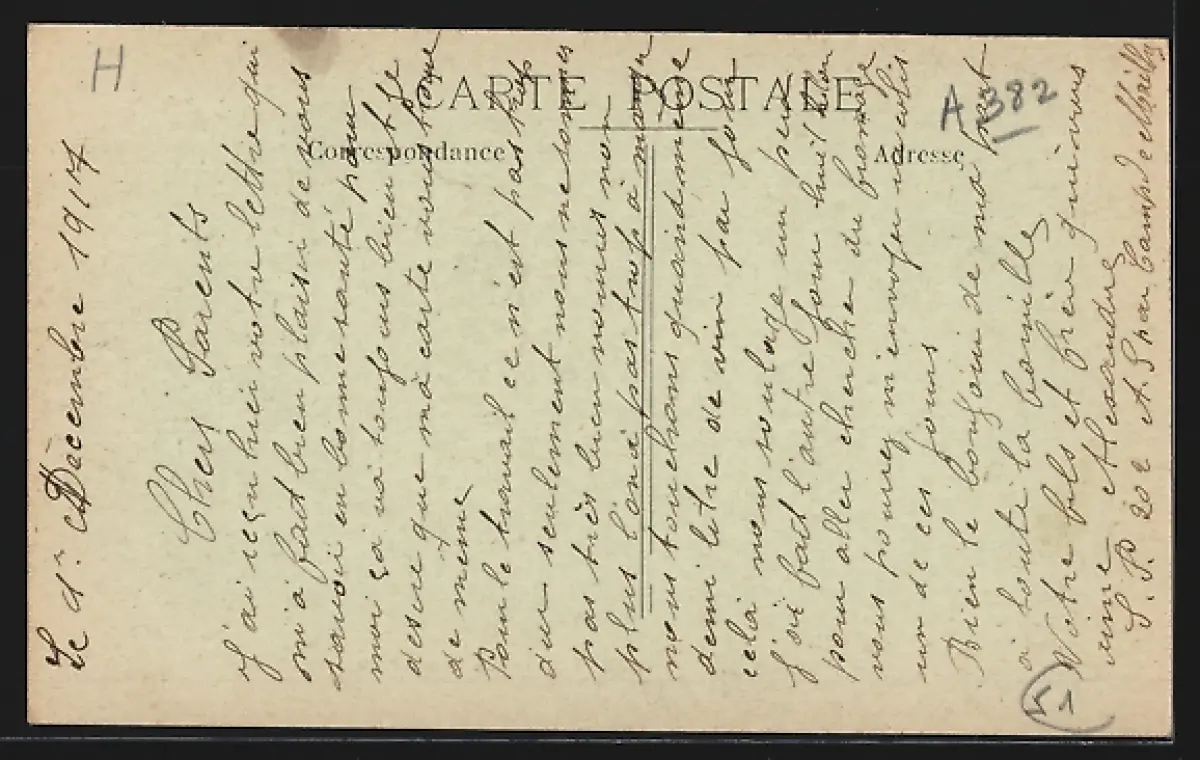 H
CARTE POSTALE
A 382
Correspondance
Adresse
Le 1r Décembre 1917
Chers Parents
J'ai reçu hier votre lettre qui
m'a fait bien plaisir de vous
savoir en bonne santé pour
moi ça va toujours bien et je
desire que ma carte vous trouve
de même
Pour le travail ce n'est pas trop
dur seulement nous ne sommes
pas très bien nourris non
plus l'on a pas trop à manger
nous touchons quand même
demi litre de vin par jour
cela nous soulage un peu
J'ai fait l'autre jour huit
pour aller cherche du fromage
vous pourrez m'envoyer un colis
un de ces jours
Bien le bonjour de ma part
a toute la famille
Votre fils et frère qui vous
aime Alexandre
S. P. 20e A par Camp de Mailly